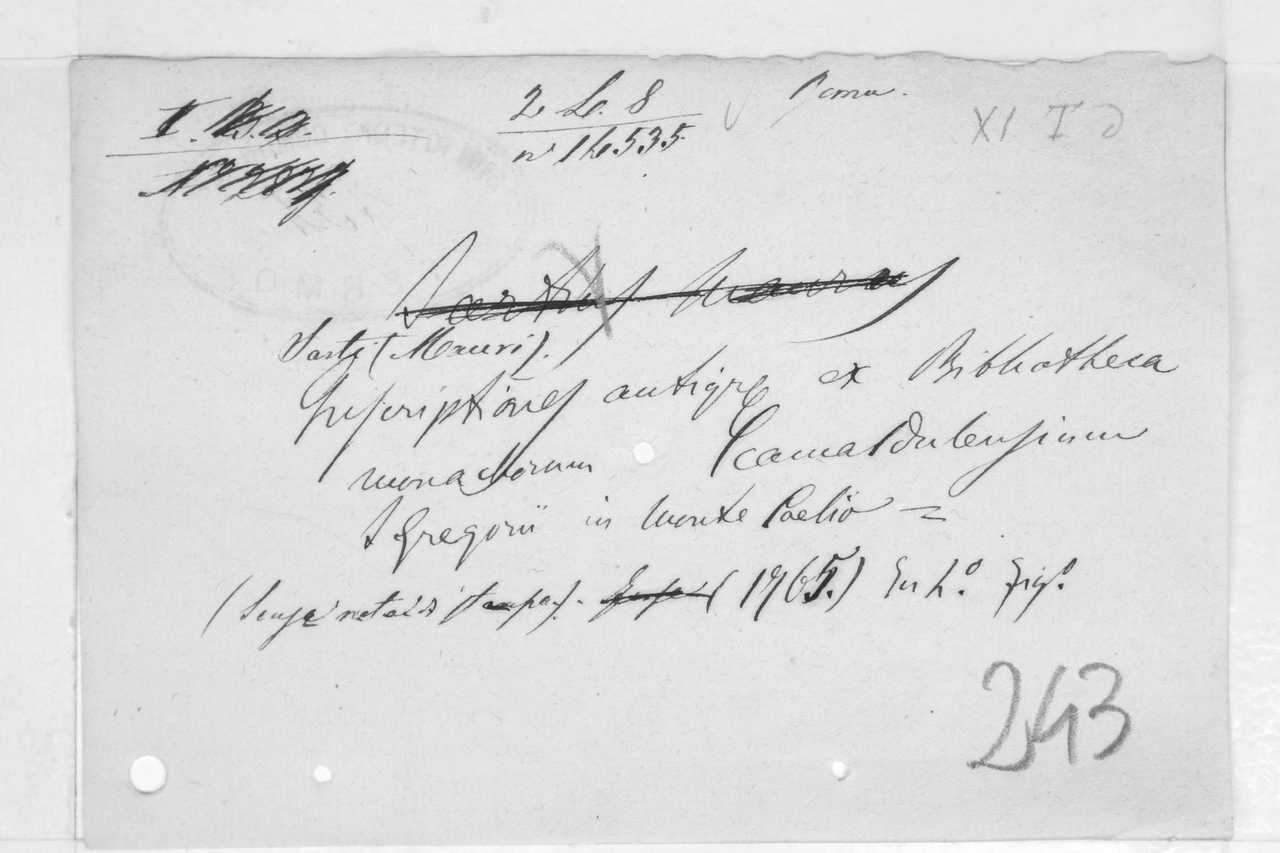 2 L. 8
n 16535
Roma.
XI I D
Sartius Maurus
Sarti (Mauri).
Inscriptiones antiqę ex Bibliotheca
monachorum Camaldulensium
S Gregorii in Monte Coelio =
(Senza nota di stampa). (1765.) In 4.º fig.º
243